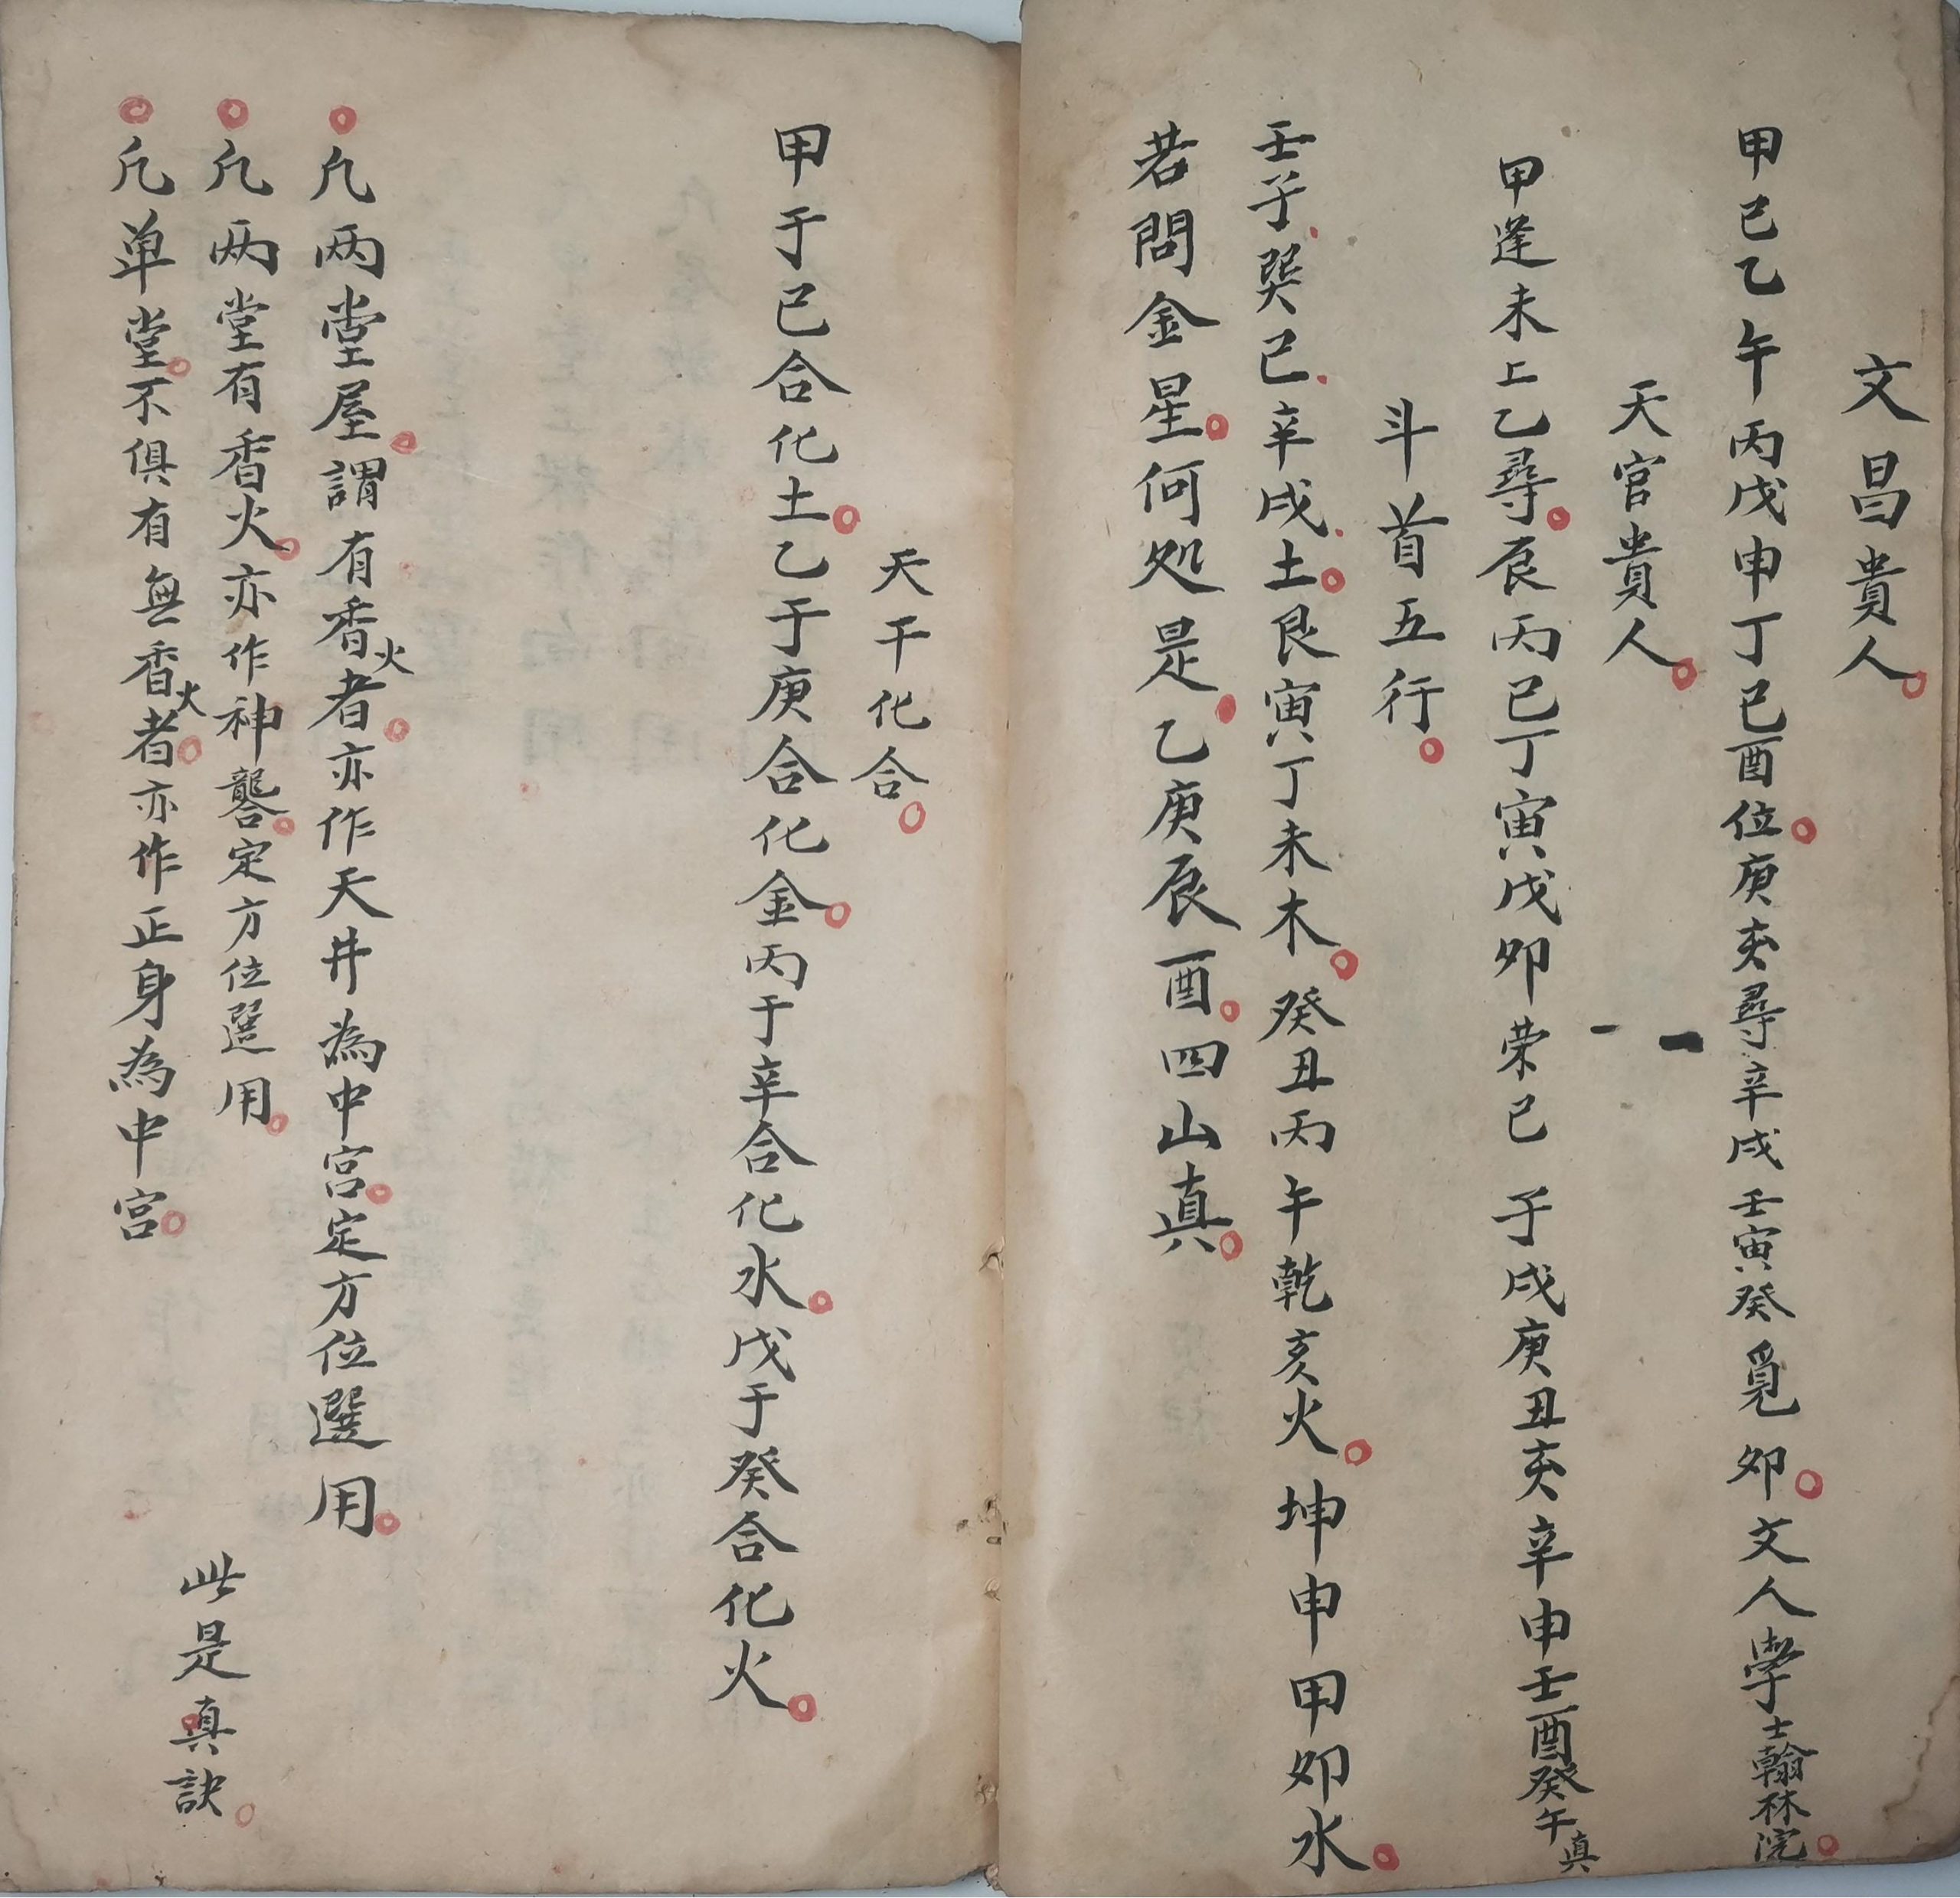 文昌貴人
甲巳乙午丙戊申丁巳酉位庚亥尋辛戌壬寅癸覓卯文人學士翰林院
天官貴人
甲逢未上乙尋辰丙巳丁寅戊卯荣己子戌庚丑亥辛申壬酉癸午真
斗首五行
壬子巽巳辛戌土艮寅丁未木癸丑丙午乾亥火坤申甲卯水
若問金星何処是乙庚辰酉四山真
天干化合
甲于己合化土乙于庚合化金丙于辛合化水戊于癸合化火
凢两堂屋謂有香火者亦作天井為中宫定方位選用
凢两堂有香火亦作神龕定方位選用
凢单堂不俱有無香火者亦作正身為中宫
此是真訣